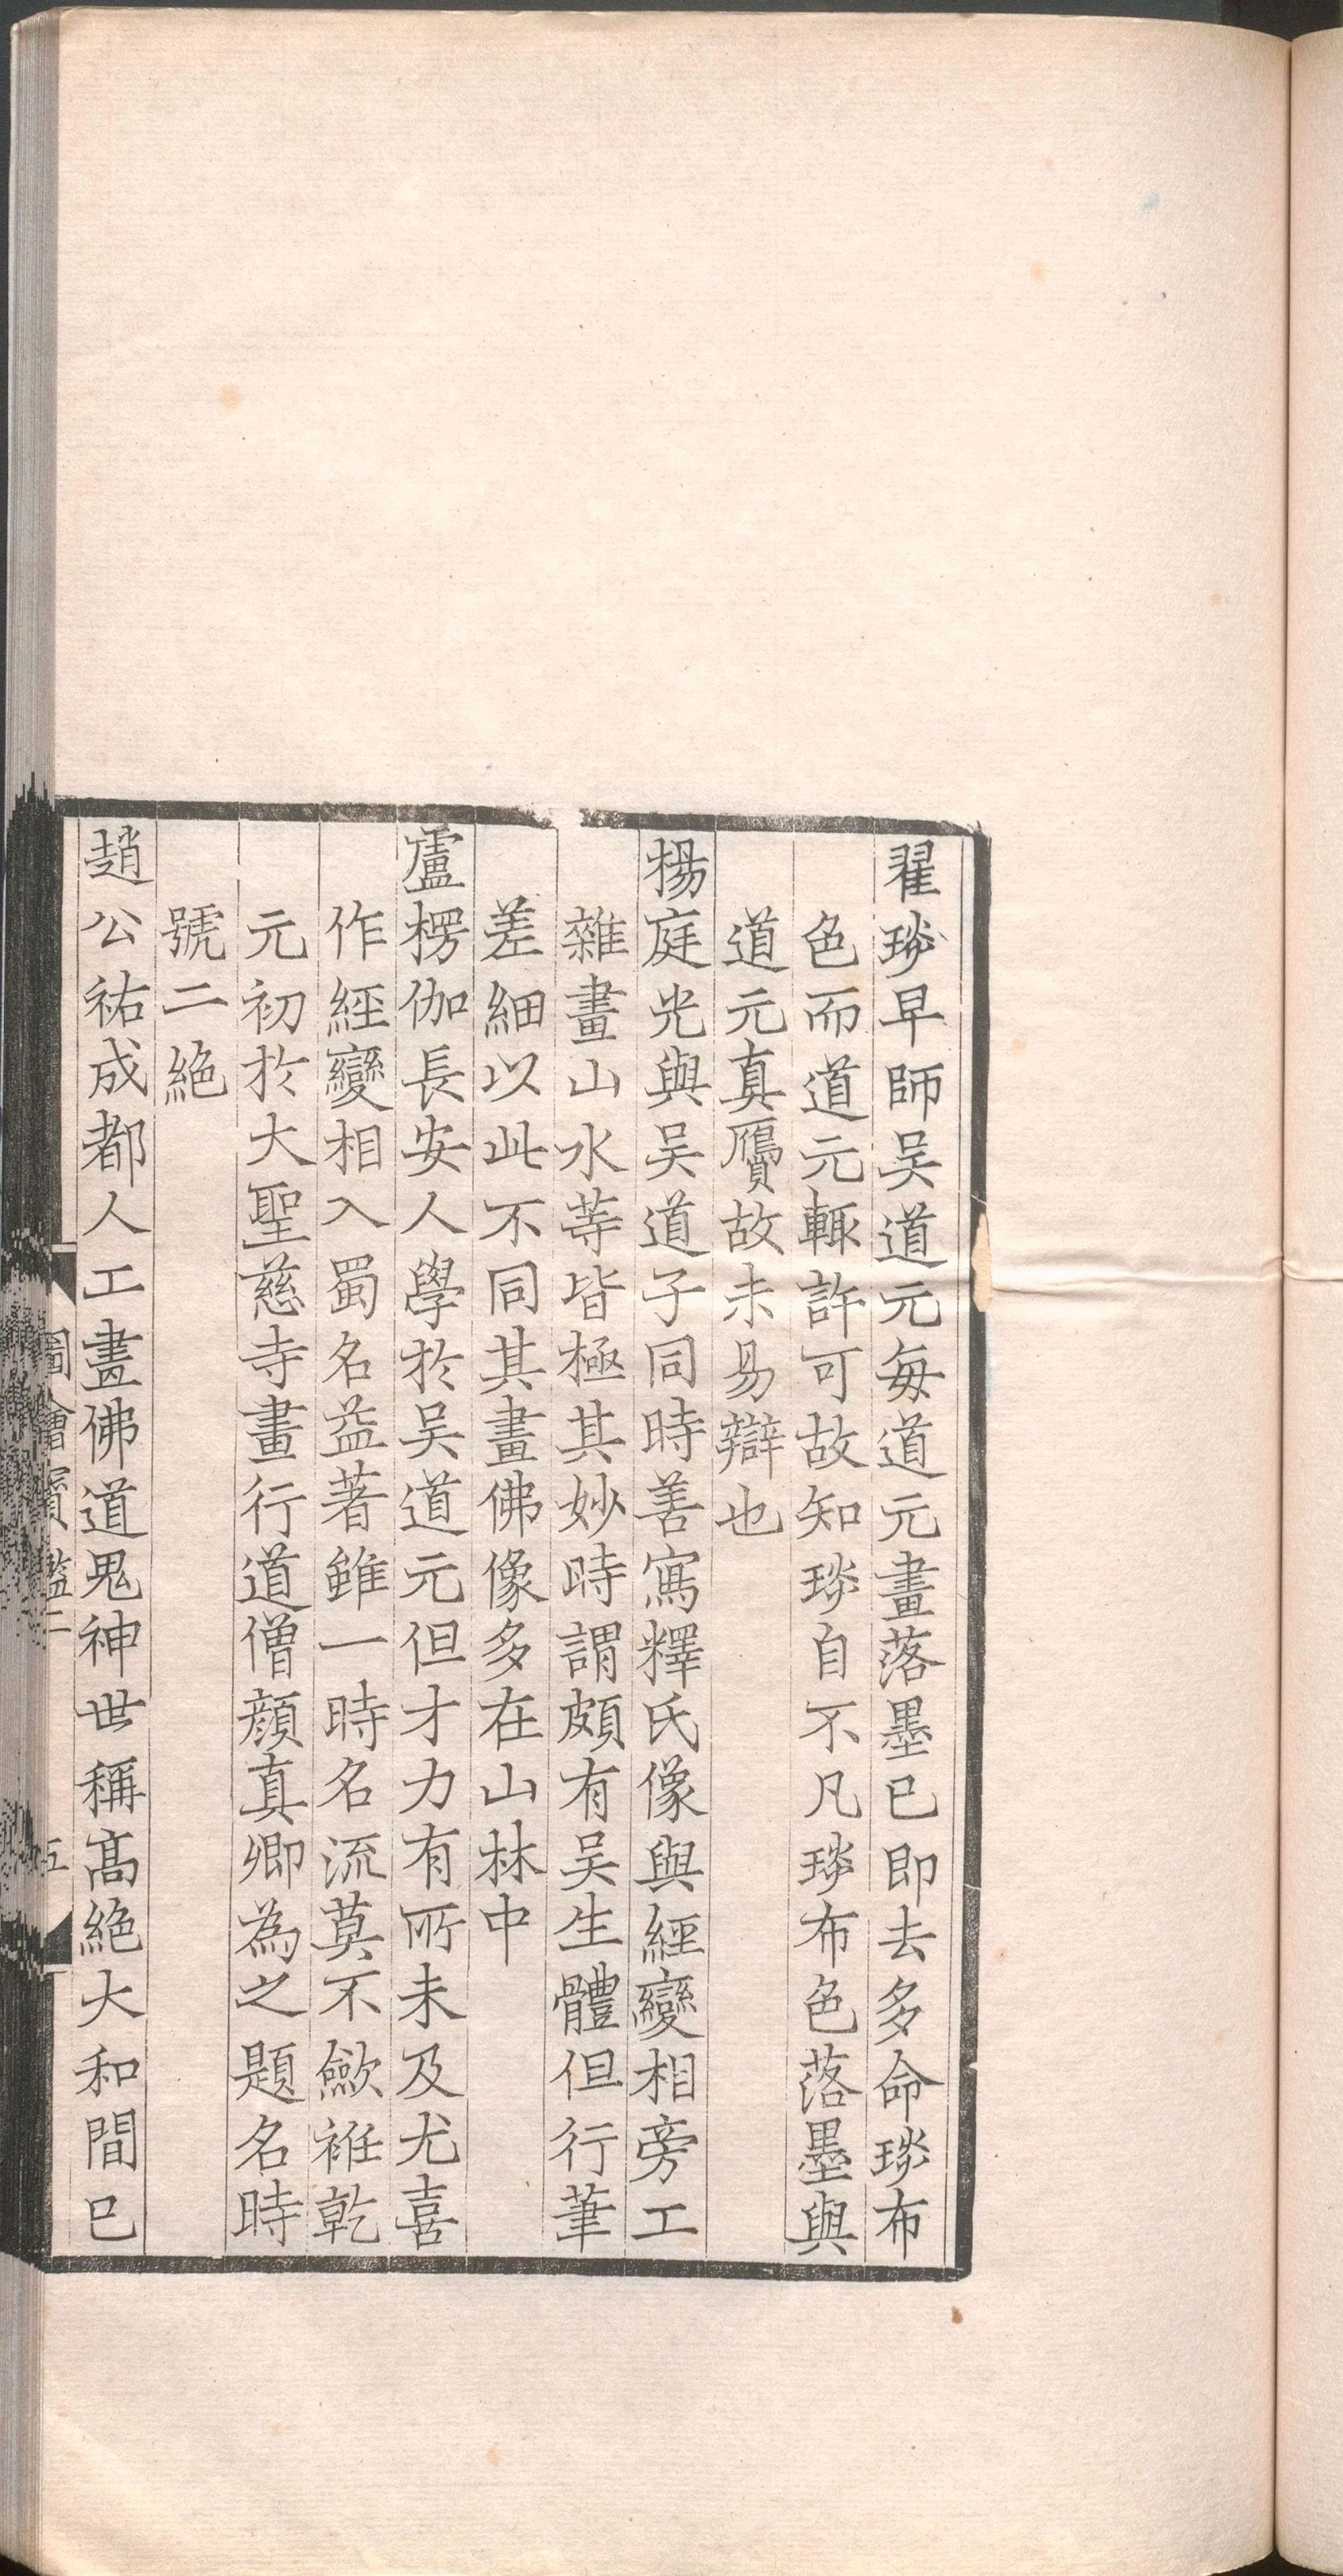 翟琰早師吴道元每道元畫落墨已即去多命琰布
色而道元輙許可故知琰自不凡琰布色落墨與
道元真贋故未易辯也
楊庭光與吴道子同時善寫釋氏像與經變相旁工
雜畫山水等皆極其妙時謂頗有吴生體但行筆
差細以此不同其畫佛像多在山林中
盧楞伽長安人學於吴道元但才力有所未及尤喜
作經變相入蜀名益著雖一時名流莫不歛衽乾
元初於大聖慈寺畫行道僧顔真卿為之題名時
號二絶
趙公祐成都人工畫佛道鬼神世稱髙絶大和間已
圖繪寳鑑二
五